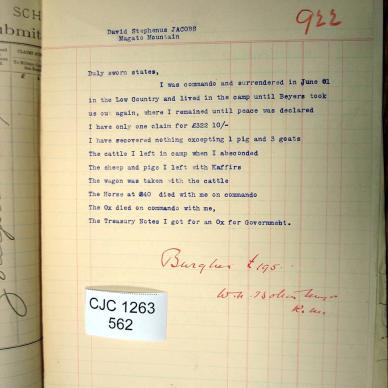 SCH
ubmit
922
David Stephenus JACOBS
Magato Mountain
Duly sworn states,
I was commando and surrendered in June 01
in the Low Country and lived in the camp until Beyers took
us out again, where I remained until peace was declared
I have only one claim for £322 10/-
I have recovered nothing excepting 1 pig and 3 goats
The cattle I left in camp when I absconded
The sheep and pigs I left with Kaffirs
The wagon was taken with the cattle
The Horse at £40 died with me on commando
The Ox died on commando with me,
The Treasury Notes I got for an Ox for Government.
Burgher £195
R.M.
CJC 1263
562